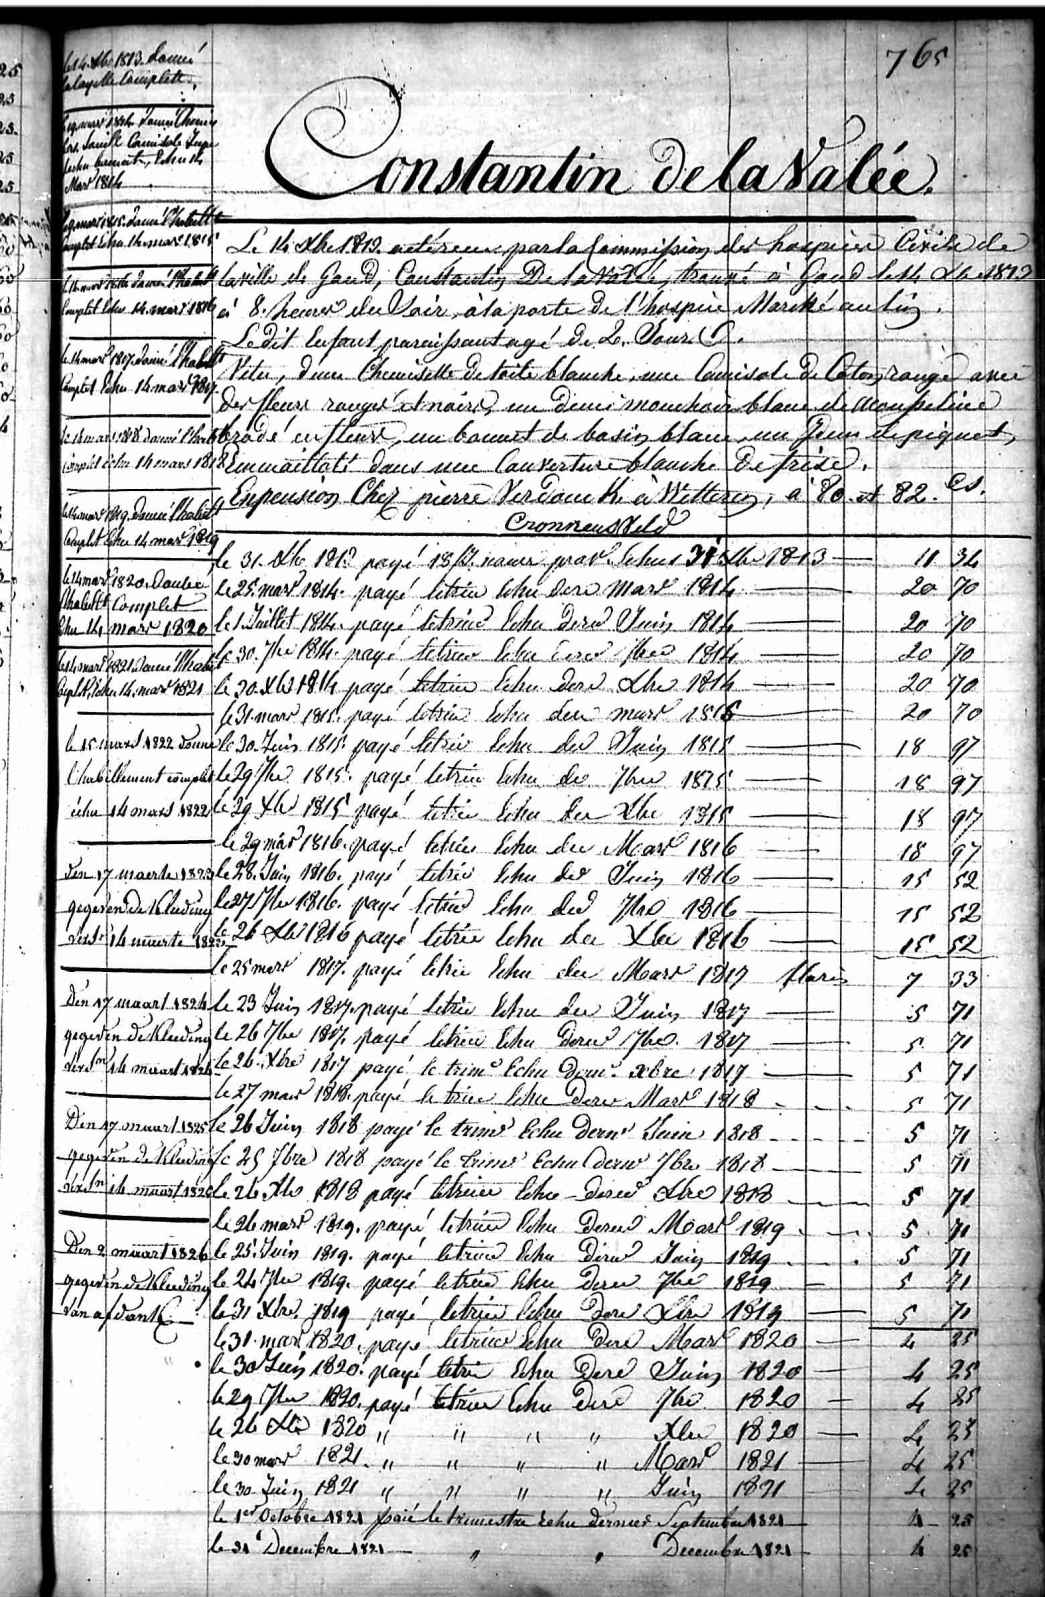 765
Constantin De la Valée.
Le 14 Xbre 1813. a été reçu par la Commission des hospices Civils de
la ville de Gand, Constantin De la Valée, trouvé à Gand le 14 Xbre 1813
à 8. heures du Soir, à la porte de l'hospice Marché au lin.
Le dit Enfant paraissant agé de 2. Jours
Vetu, d'une Chemisette de toile blanche, une Camisole de Coton rouge avec
des fleurs rouges et noires, un demi mouchoir blanc de mousseline
brodé en fleurs, un bonnet de basin blanc, un
Emmailloté dans une Couverture blanche De frise.
En pension Chez pierre Verdonck à Wetteren, à 80. et 82. Cs.
Cronneusveld
le 31. Xbre 1813 payé 18 Echus 31 Xbre 1813 11 34
le 25. mars 1814. payé letrim Echu dere Mars 1814 20 70
le 1 Juillet 1814. payé letrim Echu dere Juin 1814 20 70
le 30. 7bre 1814. payé letrim Echu dere 7bre 1814 20 70
le 30. Xbre 1814 payé letrim Echu dere Xbre 1814 20 70
le 31 mars 1815. payé letrim Echu der mars 1815 20 70
le 30. Juin 1815. payé letrim Echu der Juin 1815 18 97
le 29 7bre 1815. payé letrim Echu der 7bre 1815 18 97
le 29 Xbre 1815 payé letrim Echu der Xbre 1815 18 97
le 29 mars 1816. payé letrim Echu der Mars 1816 18 97
le 28. Juin 1816. payé letrim Echu der Juin 1816 15 52
le 27 7bre 1816. payé letrim Echu der 7bre 1816 15 52
le 26 Xbre 1816 payé letrim Echu der Xbre 1816 15 52
le 25 mars 1817. payé letrim Echu der Mars 1817 florins 7 33
le 23 Juin 1817. payé letrim Echu der Juin 1817 5 71
le 26 7bre 1817. payé letrim Echu dern 7bre. 1817 5 71
le 26. Xbre 1817 payé le trimre Echu dernr. xbre 1817 5 71
le 27 mars 1818. payé le trim Echu Dere Mars 1818 5 71
le 26 Juin 1818 payé le trimre Echu Dernr Juin 1818 5 71
le 25 7bre 1818 payé le trimre Echu Dernr 7bre 1818 5 71
le 26 Xbre 1818 payé letrim Echu dernr Xbre 1818 5 71
le 26 mars 1819. payé letrim Echu Dern Mars 1819 5 71
le 25. Juin 1819. payé letrim Echu Dern Juin 1819 5 71
le 24 7bre 1819. payé letrim Echu Dern 7bre 1819 5 71
le 31 Xbre. 1819 payé letrim Echu Dere Xbre 1819 5 71
le 31. mars 1820. payé letrim Echu Dere Mars 1820 4 25
le 30 Juin 1820. payé letrim Echu Dere Juin 1820 4 25
le 29 7bre 1820. payé letrim Echu Dere 7bre 1820 4 25
le 26 Xbre 1820 " " " " Xbre 1820 4 25
le 30 mars 1821. " " " " Mars 1821 4 25
le 30. Juin 1821 " " " " Juin 1821 4 25
le 1er Octobre 1821 paié le trimestre Echu dernier Septembre 1821 4 25
le 31 Decembre 1821 " " Decembre 1821 4 25
le 14. Xbre 1813. donné
la layette Complette.
Mars 1814
le 14 mars 1815. donné l'habillt
Complet Echu 14. mars 1815
le 14 mars 1816 donné l'habillt
Complet Echu 14. mars 1816
le 14 mars 1817. donné l'habillt
Complet Echu 14 mars 1817.
le 14 mars 1818 donné l'habillt
Complet échu 14 mars 1818
le 14 mars 1819. donné l'habillt
Complet Echu 14 mars 1819
le 14 mars 1820. donné
l'habillt Complet
Echu 14 mars 1820
le 14 mars 1821. donné l'habillt
Complt, Echu 14. mars 1821
le 15 mars 1822 donné
l'habillement complet
échu 14 mars 1822
Den 17 maerte 1823
gegeven de Kleeding
verse. 14 maerte 1823
Den 17 maart 1824
gegeven de Kleeding
versen 14 maart 1824
Den 17 maart 1825
gegeven de Kleeding
versen 14 maart 1825
Den 2 maart 1826
gegeven de Kleeding
van afdank